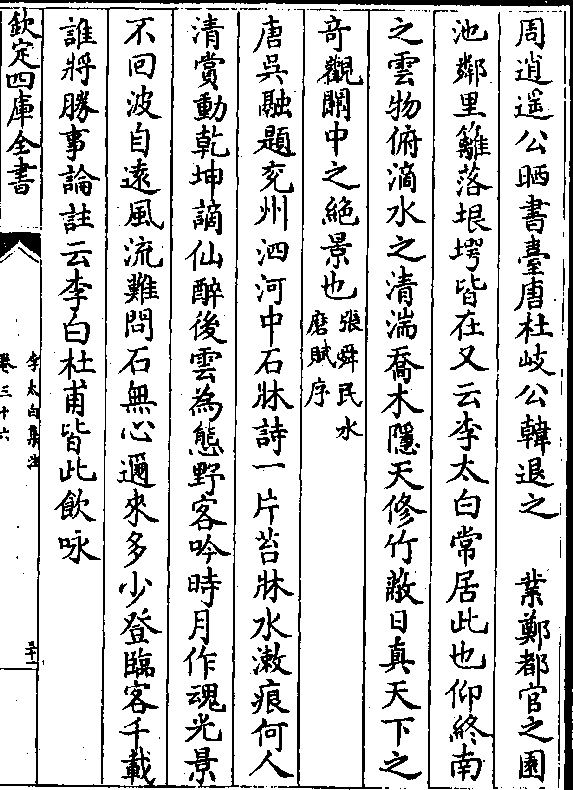 周逍遥公晒書臺唐杜岐公韓退之　業鄭都官之園
池鄰里籬落垠堮皆在又云李太白常居此也仰終南
之雲物俯滈水之清湍喬木隱天修竹蔽日真天下之
奇觀關中之絶景也張舜民水
磨賦序
唐吳融題兖州泗河中石牀詩一片苔牀水漱痕何人
清賞動乾坤謫仙醉後雲為態野客吟時月作魂光景
不回波自逺風流難問石無心邇來多少登臨客千載
誰將勝事論註云李白杜甫皆此飲咏
欽定四庫全書
李太白集注
卷三十六